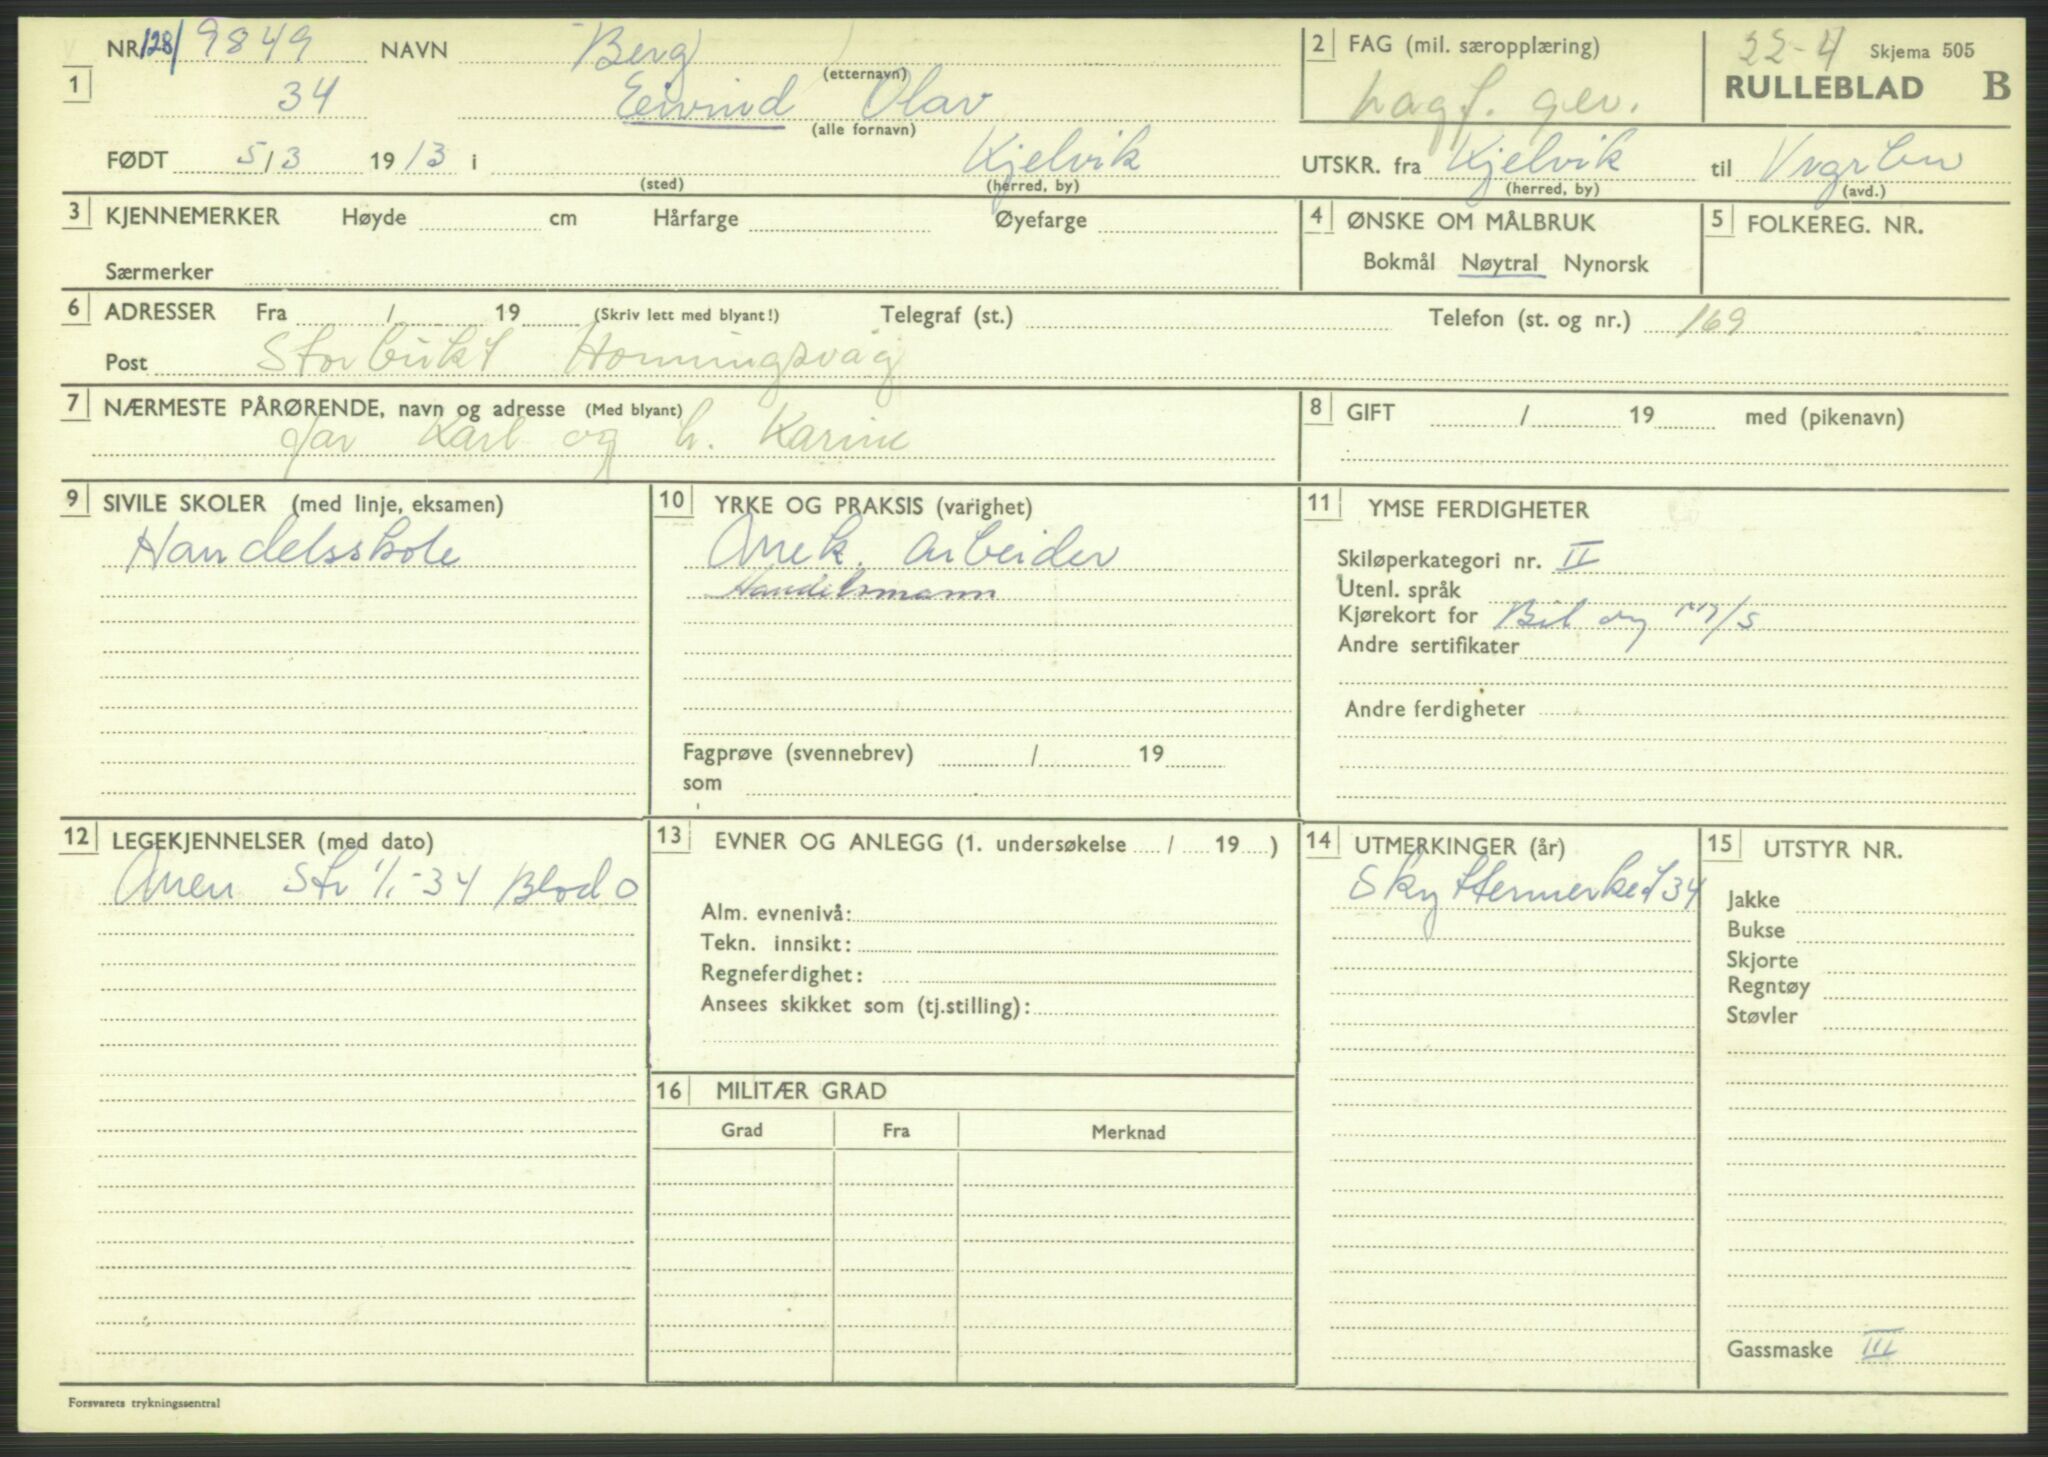 NR 128/9849 NAVN Berg
(etternavn)
2 FAG (mil. særopplæring)
Lagf. gev.
22-4 Skjema 505
RULLEBLAD B
1
34 Eivind Olav
(alle fornavn)
FØDT 5/3 1913 i Kjelvik
(sted) (herred, by)
UTSKR. fra Kjelvik til
(herred, by) (avd.)
3 KJENNEMERKER Høyde cm Hårfarge Øyefarge
Særmerker
4 ØNSKE OM MÅLBRUK
Bokmål Nøytral Nynorsk
5 FOLKEREG. NR.
6 ADRESSER Fra / 19 (Skriv lett med blyant!) Telegraf (st.) Telefon (st. og nr.) 169
Post Storbukt Honningsvåg
7 NÆRMESTE PÅRØRENDE, navn og adresse (Med blyant)
far Karl og h. Karine
8 GIFT / 19 med (pikenavn)
9 SIVILE SKOLER (med linje, eksamen)
Handelsskole
10 YRKE OG PRAKSIS (varighet)
Mek. arbeider
Handelsmann
Fagprøve (svennebrev) / 19
som
11 YMSE FERDIGHETER
Skiløperkategori nr. II
Utenl. språk
Kjørekort for Bil og m/s
Andre sertifikater
Andre ferdigheter
12 LEGEKJENNELSER (med dato)
Str 1/1-34 Blod O
13 EVNER OG ANLEGG (1. undersøkelse / 19 )
Alm. evnenivå:
Tekn. innsikt:
Regneferdighet:
Ansees skikket som (tj.stilling):
14 UTMERKINGER (år)
Skyttermerket 34
15 UTSTYR NR.
Jakke
Bukse
Skjorte
Regntøy
Støvler
Gassmaske III
16 MILITÆR GRAD
Grad Fra Merknad
Forsvarets trykningssentral